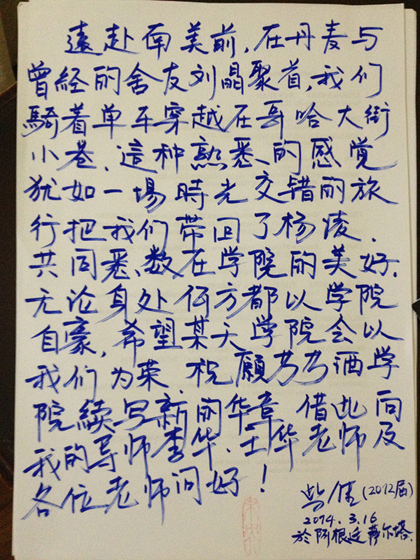 遠赴南美前,在丹麦与
曾經的舍友刘晶聚首,我们
騎着单车穿越在哥哈大街
小巷.這种熟悉的感覺
犹如一場時光交错的旅
行把我们带回了杨凌.
共同悉数在学院的美好.
无论身处何方都以学院
自豪,希望某天学院会以
我们为荣.祝願酒学
院續写新的华章.借此向
我的导师李华.王华老师及
各位老师问好!
(2012届)
2014.3.16
於阿根廷萨尔塔.